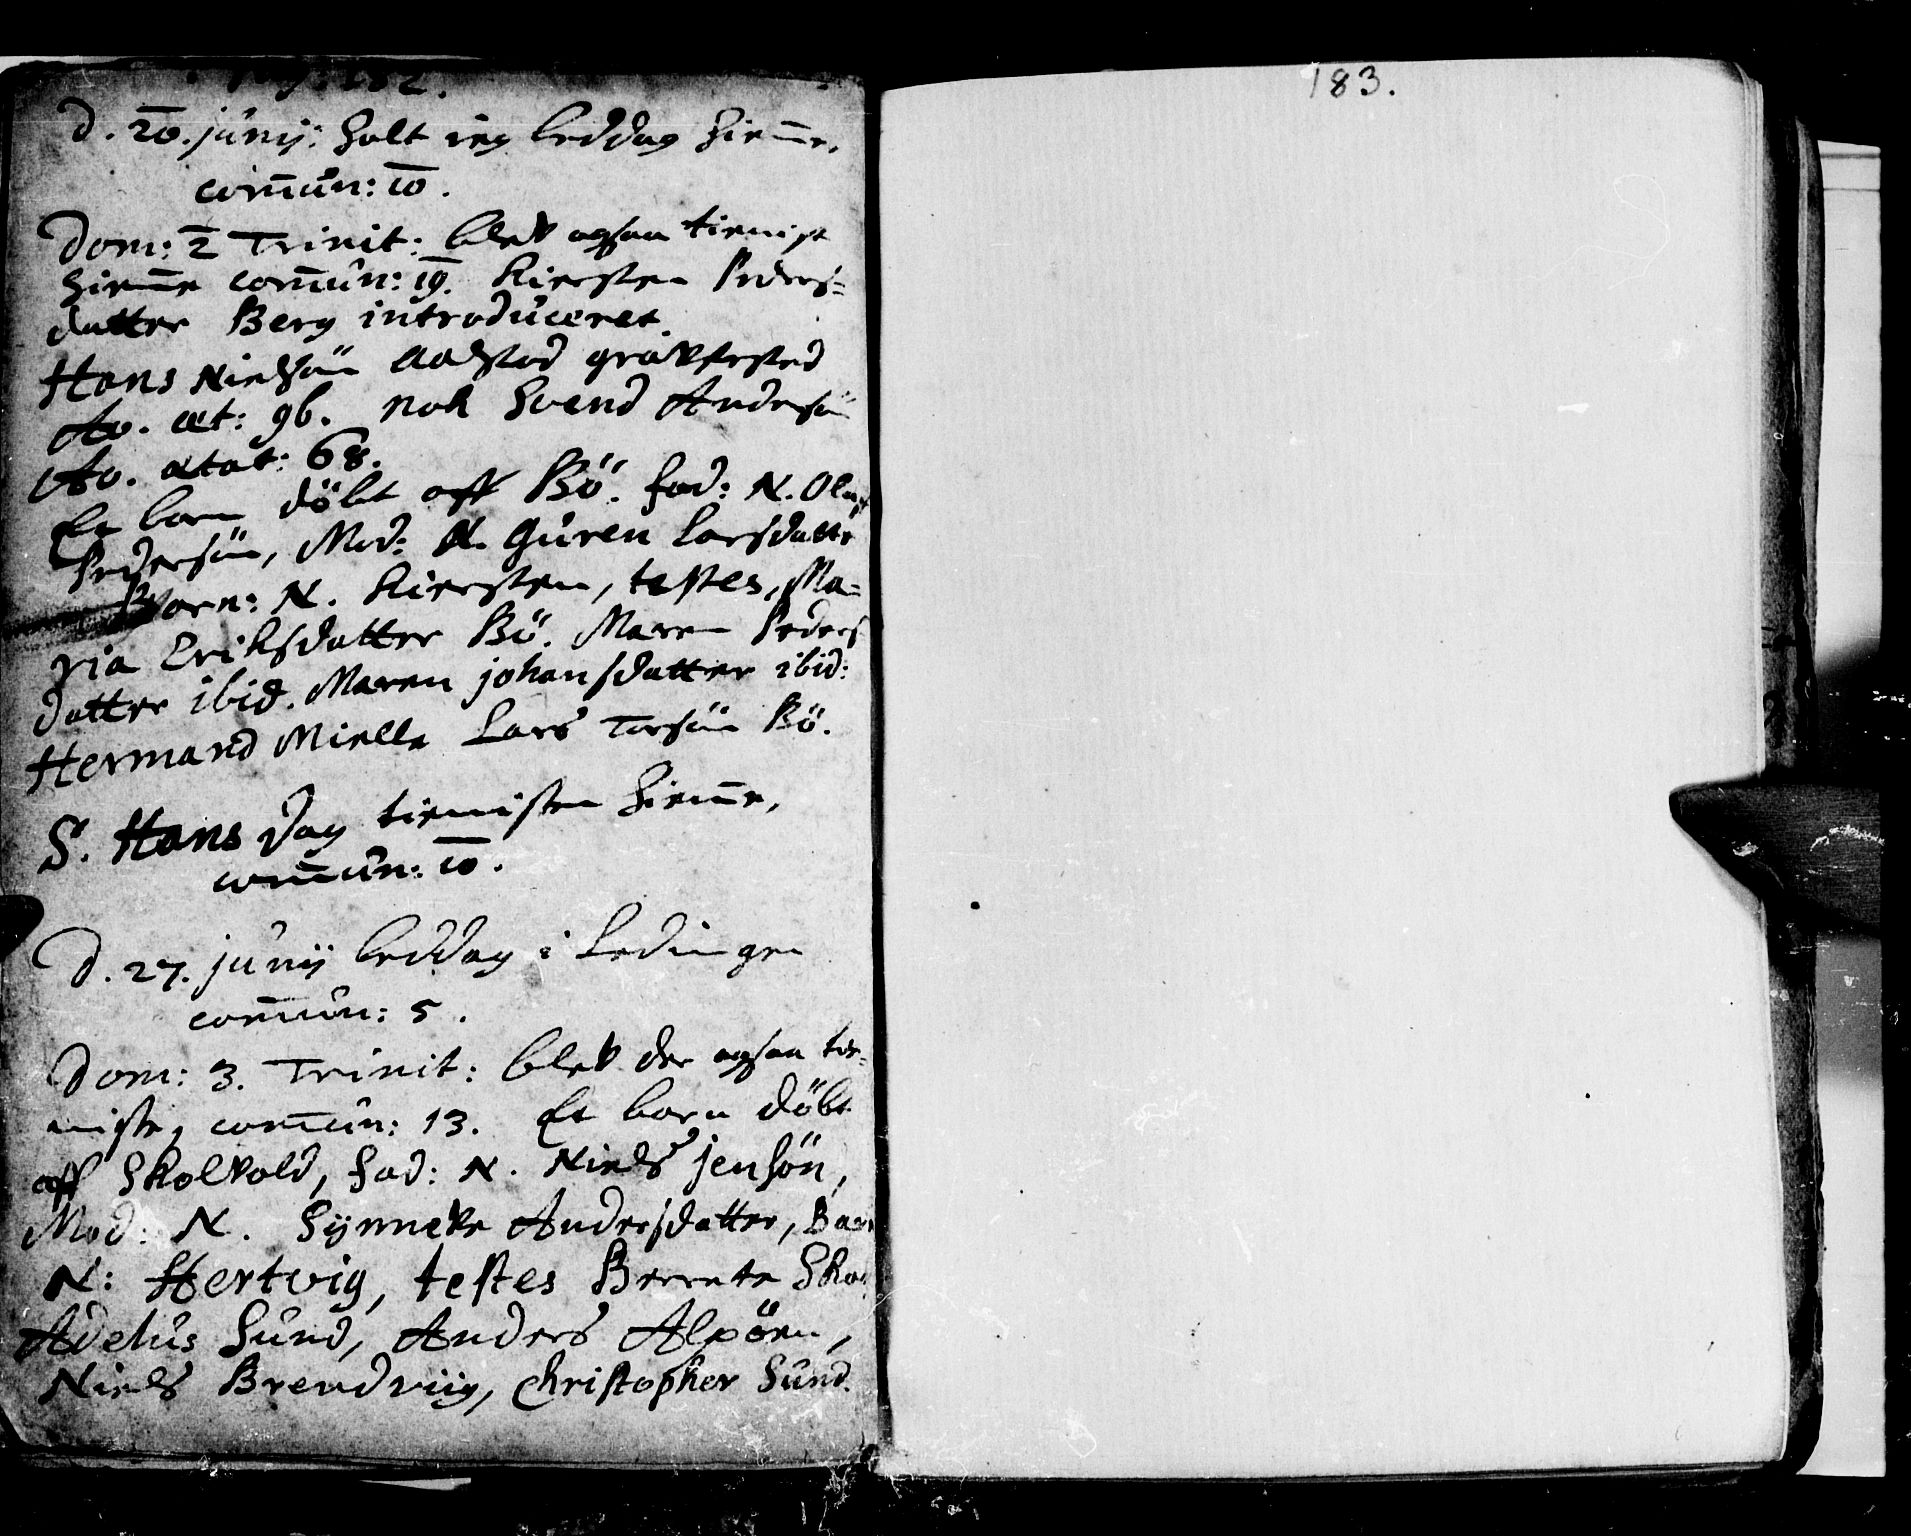 Pag: 182.
d. 20. junij: holt ieg beddag hiem̅e,
com̅un: 10.
Dom: 2 Trinit: blev ogsaa tienist
hiem̅e com̅un: 19. Kiersten Peders-
datter Berg introduceret.
Hans Nielsön Aastad gravfested
Ao. æt: 96. nok Svend Andersön
Ao. ætat: 68.
Et barn döbt aff Bö. fad: N. Oluf
Pedersön, Mod: N. Guren Larsdatter
Barn: N. Kiersten, testes, Ma-
ria Eriksdatter Bö. Maren Peders
datter ibid. Maren johansdatter ibid:
Hermand Mielle Lars Torsön Bö.
S. Hans dag tienisten hiem̅e,
com̅un: 10.
D. 27. junij beddag i Lödingen
com̅un: 5.
Dom: 3. Trinit: blev der ogsaa tie-
niste, com̅un: 13. Et barn döbt
aff Skolvold, fad: N. Niels jensön,
Mod: N. Synneve Andersdatter, Barn
N: Hertvig, testes Berrete
Adelus Sund, Anders Alpören,
Niels Brendviig, Christopher Sund.
183.